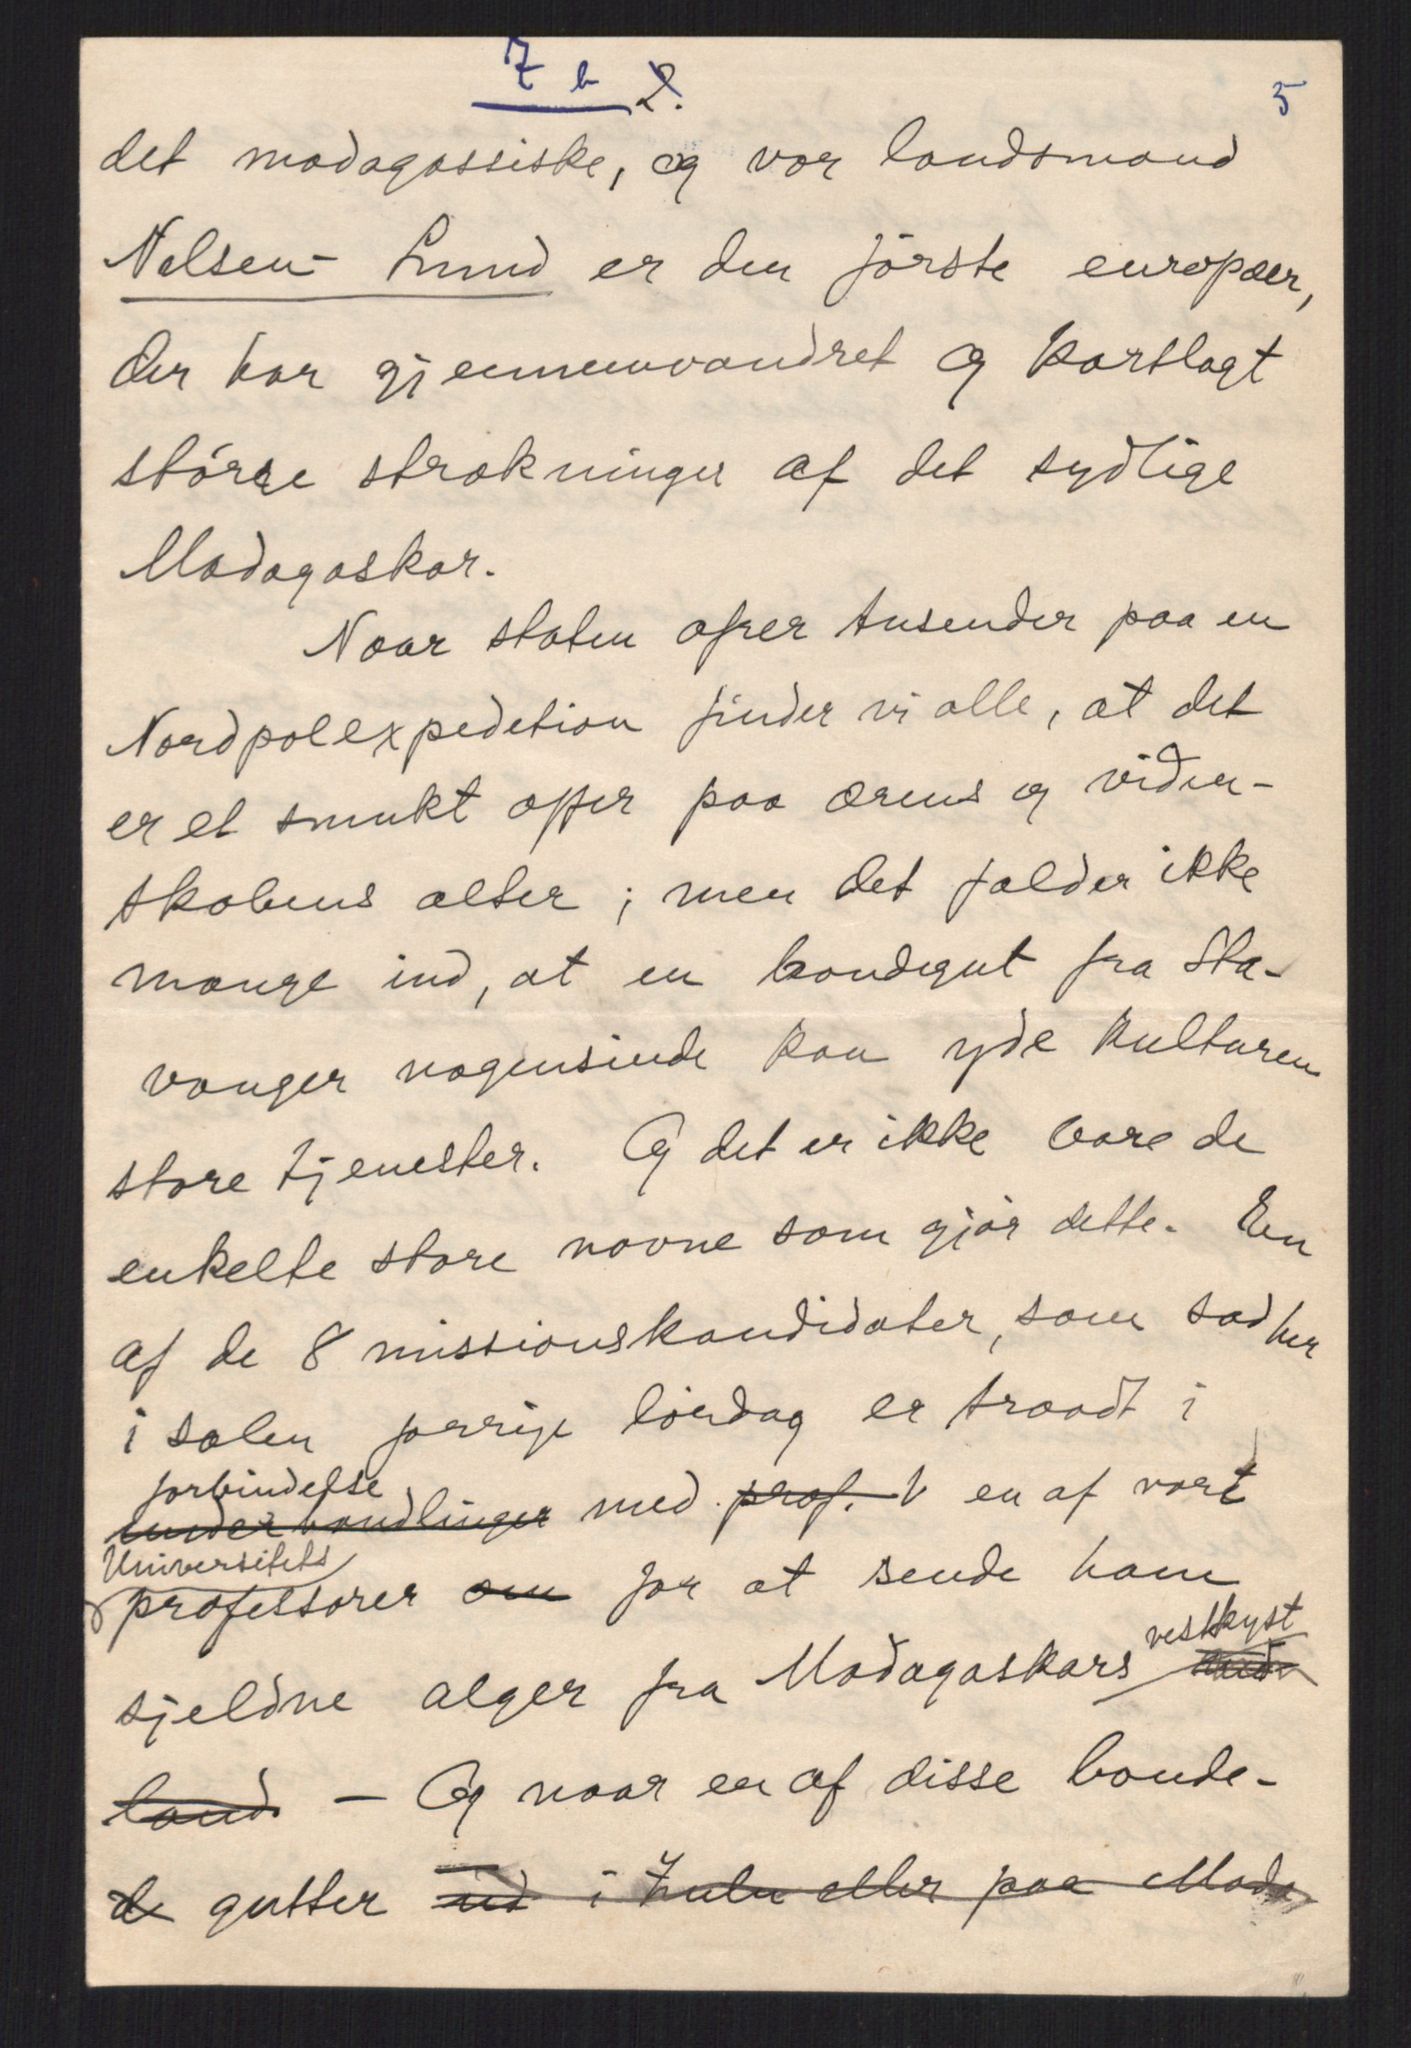 7 b 2.
5
det madagassiske, og vor landsmand
Nelsen-Lund er den förste europæer,
der har gjennemvandret og kartlagt
större strækninger af det sydlige
Madagaskar.
Naar staten ofrer tusender paa en
Nordpolexpedetion finder vi alle, at det
er et smukt offer paa ærens og viden-
skabens alter; men det falder ikke
mange ind, at en bondegut fra Sta-
vanger nogensinde kan yde kulturen
store tjenester. Og det er ikke bare de
enkelte store navne som gjör dette. En
af de 8 missionskandidater, som sad her
i salen forrige lördag er traadt i
forbindelse
underhandlinger med prof. V en af vort
Universitets
professorer om for at sende ham
vestkyst
sjeldne alger fra Madagaskars nord
land. — Og naar en af disse bonde-
de gutter ud i Zulu eller paa Mada